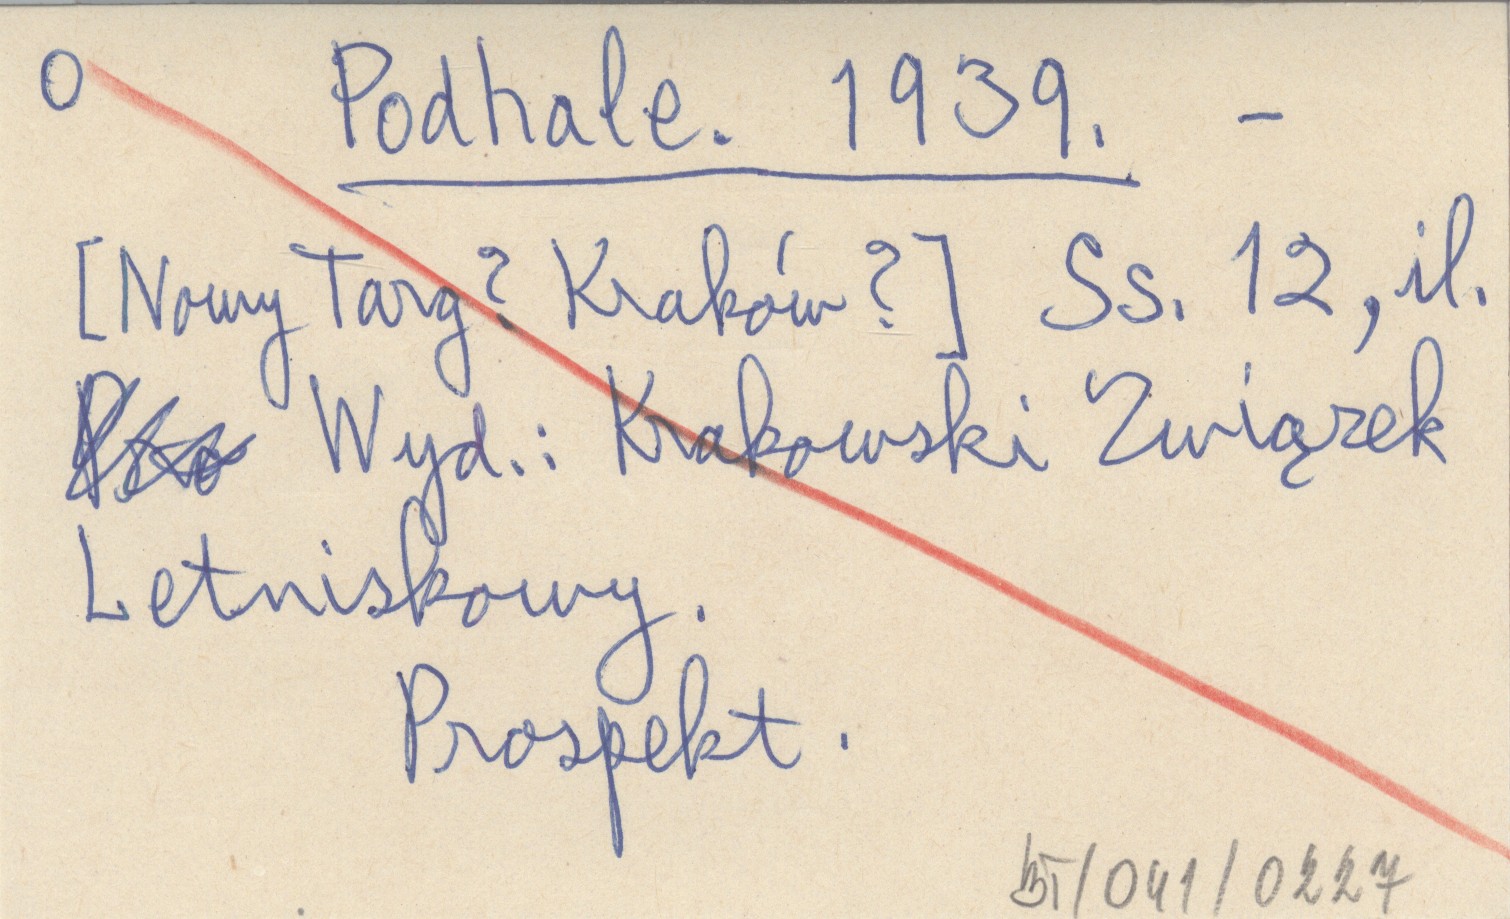 O Podhale. 1939. -
[Nowy Targ? Kraków?] Ss. 12, il.
Wyd.: Krakowski Związek
Letniskowy.
Prospekt.
/041/0227